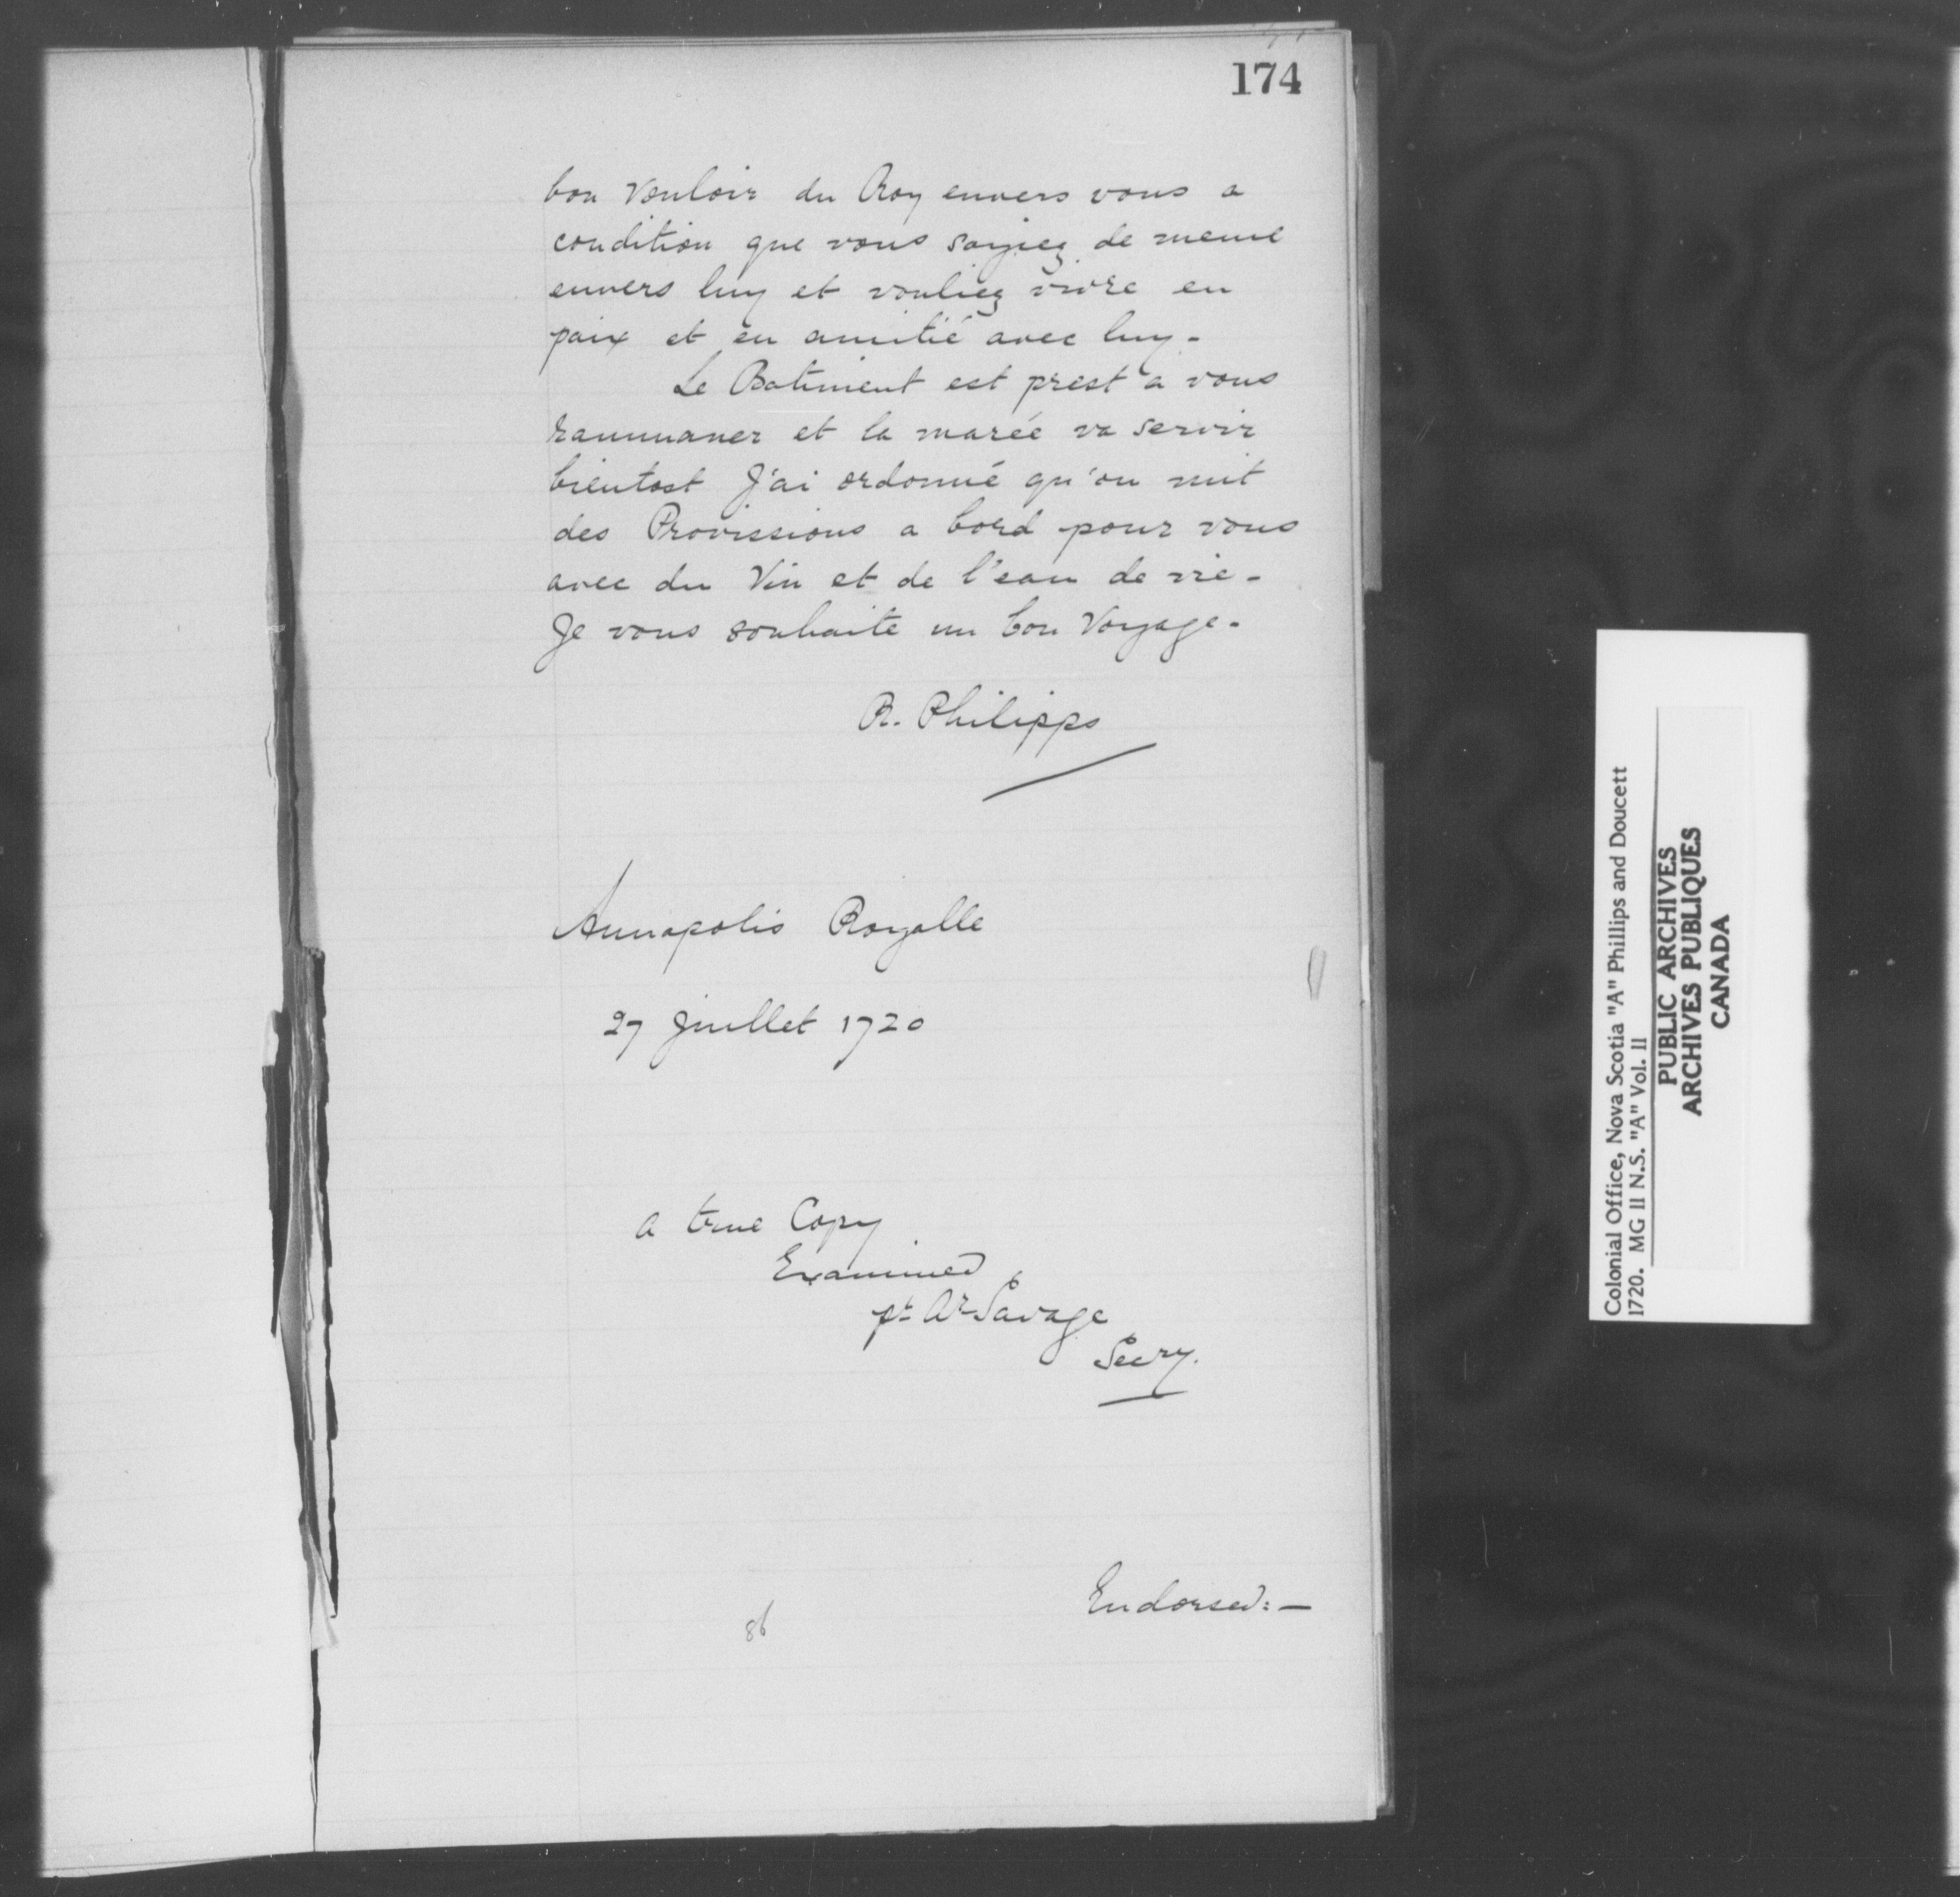 174
bon Vouloir du Roy envers vous a
condition que vous soyiez de meme
envers luy et vouliez vivre en
paix et en amitié avec luy.
Le Batiment est prest a vous
rammaner et la marée va servir
bientost J'ai ordonné qu'on mit
des Provissions a bord pour vous
avec du Vin et de l'eau de vie.
Je vous souhaite un bon Voyage.
R. Philipps
Annapolis Royalle
27 Juillet 1720
A true Copy
Examined
pr Ar Savage
Secry.
Endorsed:—
86
Colonial Office, Nova Scotia "A" Phillips and Doucett
1720. MG 11 N.S. "A" Vol. 11
PUBLIC ARCHIVES
ARCHIVES PUBLIQUES
CANADA